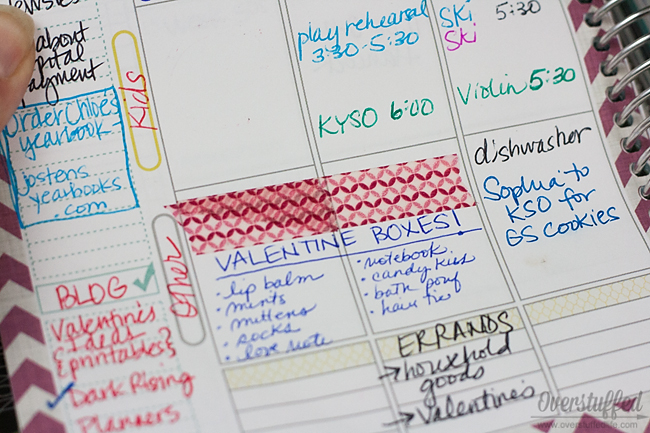 about
payment
Order Chloe's
yearbook -
jostens
yearbooks
.com
BLOG ✓
Valentine's
Ideas
{printables}
✓ Dark Rising
Planners
Kids
Other
play rehearsal
3:30-5:30
KYSO 6:00
Ski 5:30
Ski
Violin 5:30
dishwasher
Sophia to
KSO for
GS cookies
VALENTINE BOXES!
• lip balm
• mints
• mittens
• socks
• love note
• notebook
• candy kiss
• bath pouf
• hair tie
ERRANDS
→ household
goods
→ Valentine's
Overstuffed
www.overstuffedlife.com